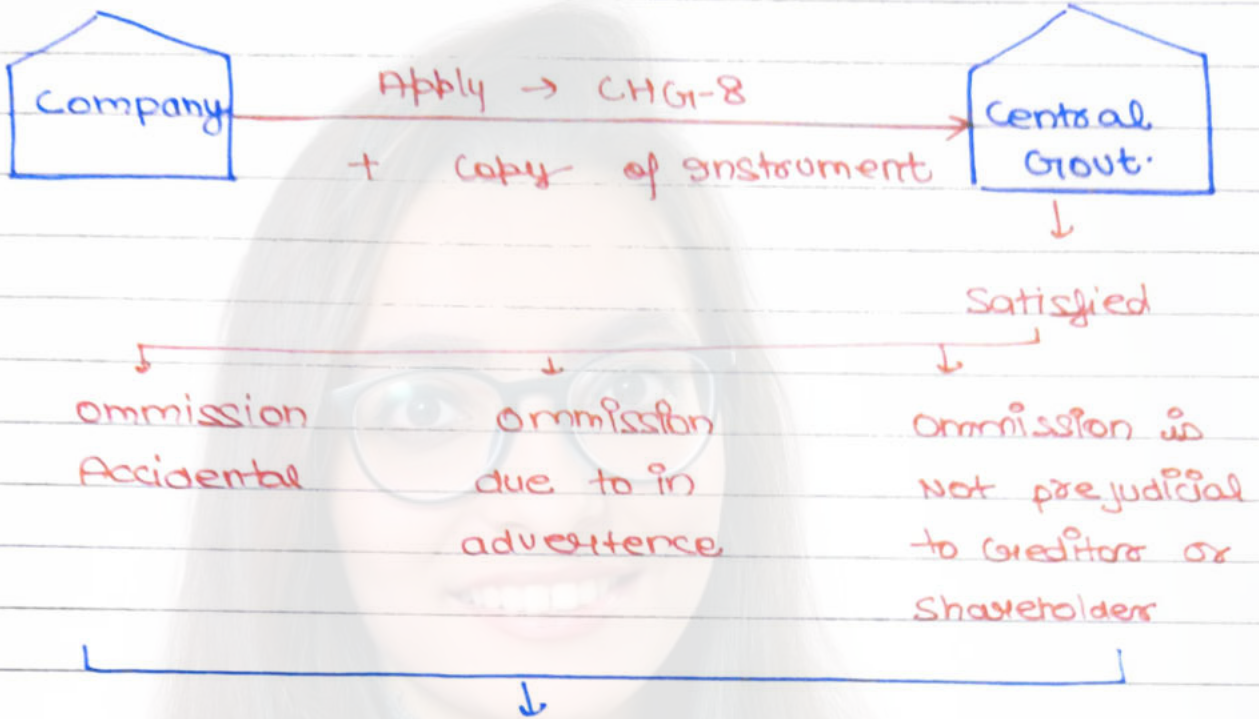 Company
Apply → CHG-8
+ Copy of Instrument
Central
Govt.
↓
Satisfied
Ommission
Accidental
Ommission
due to in
advertence
Ommission is
Not prejudicial
to Creditors or
Shareholders